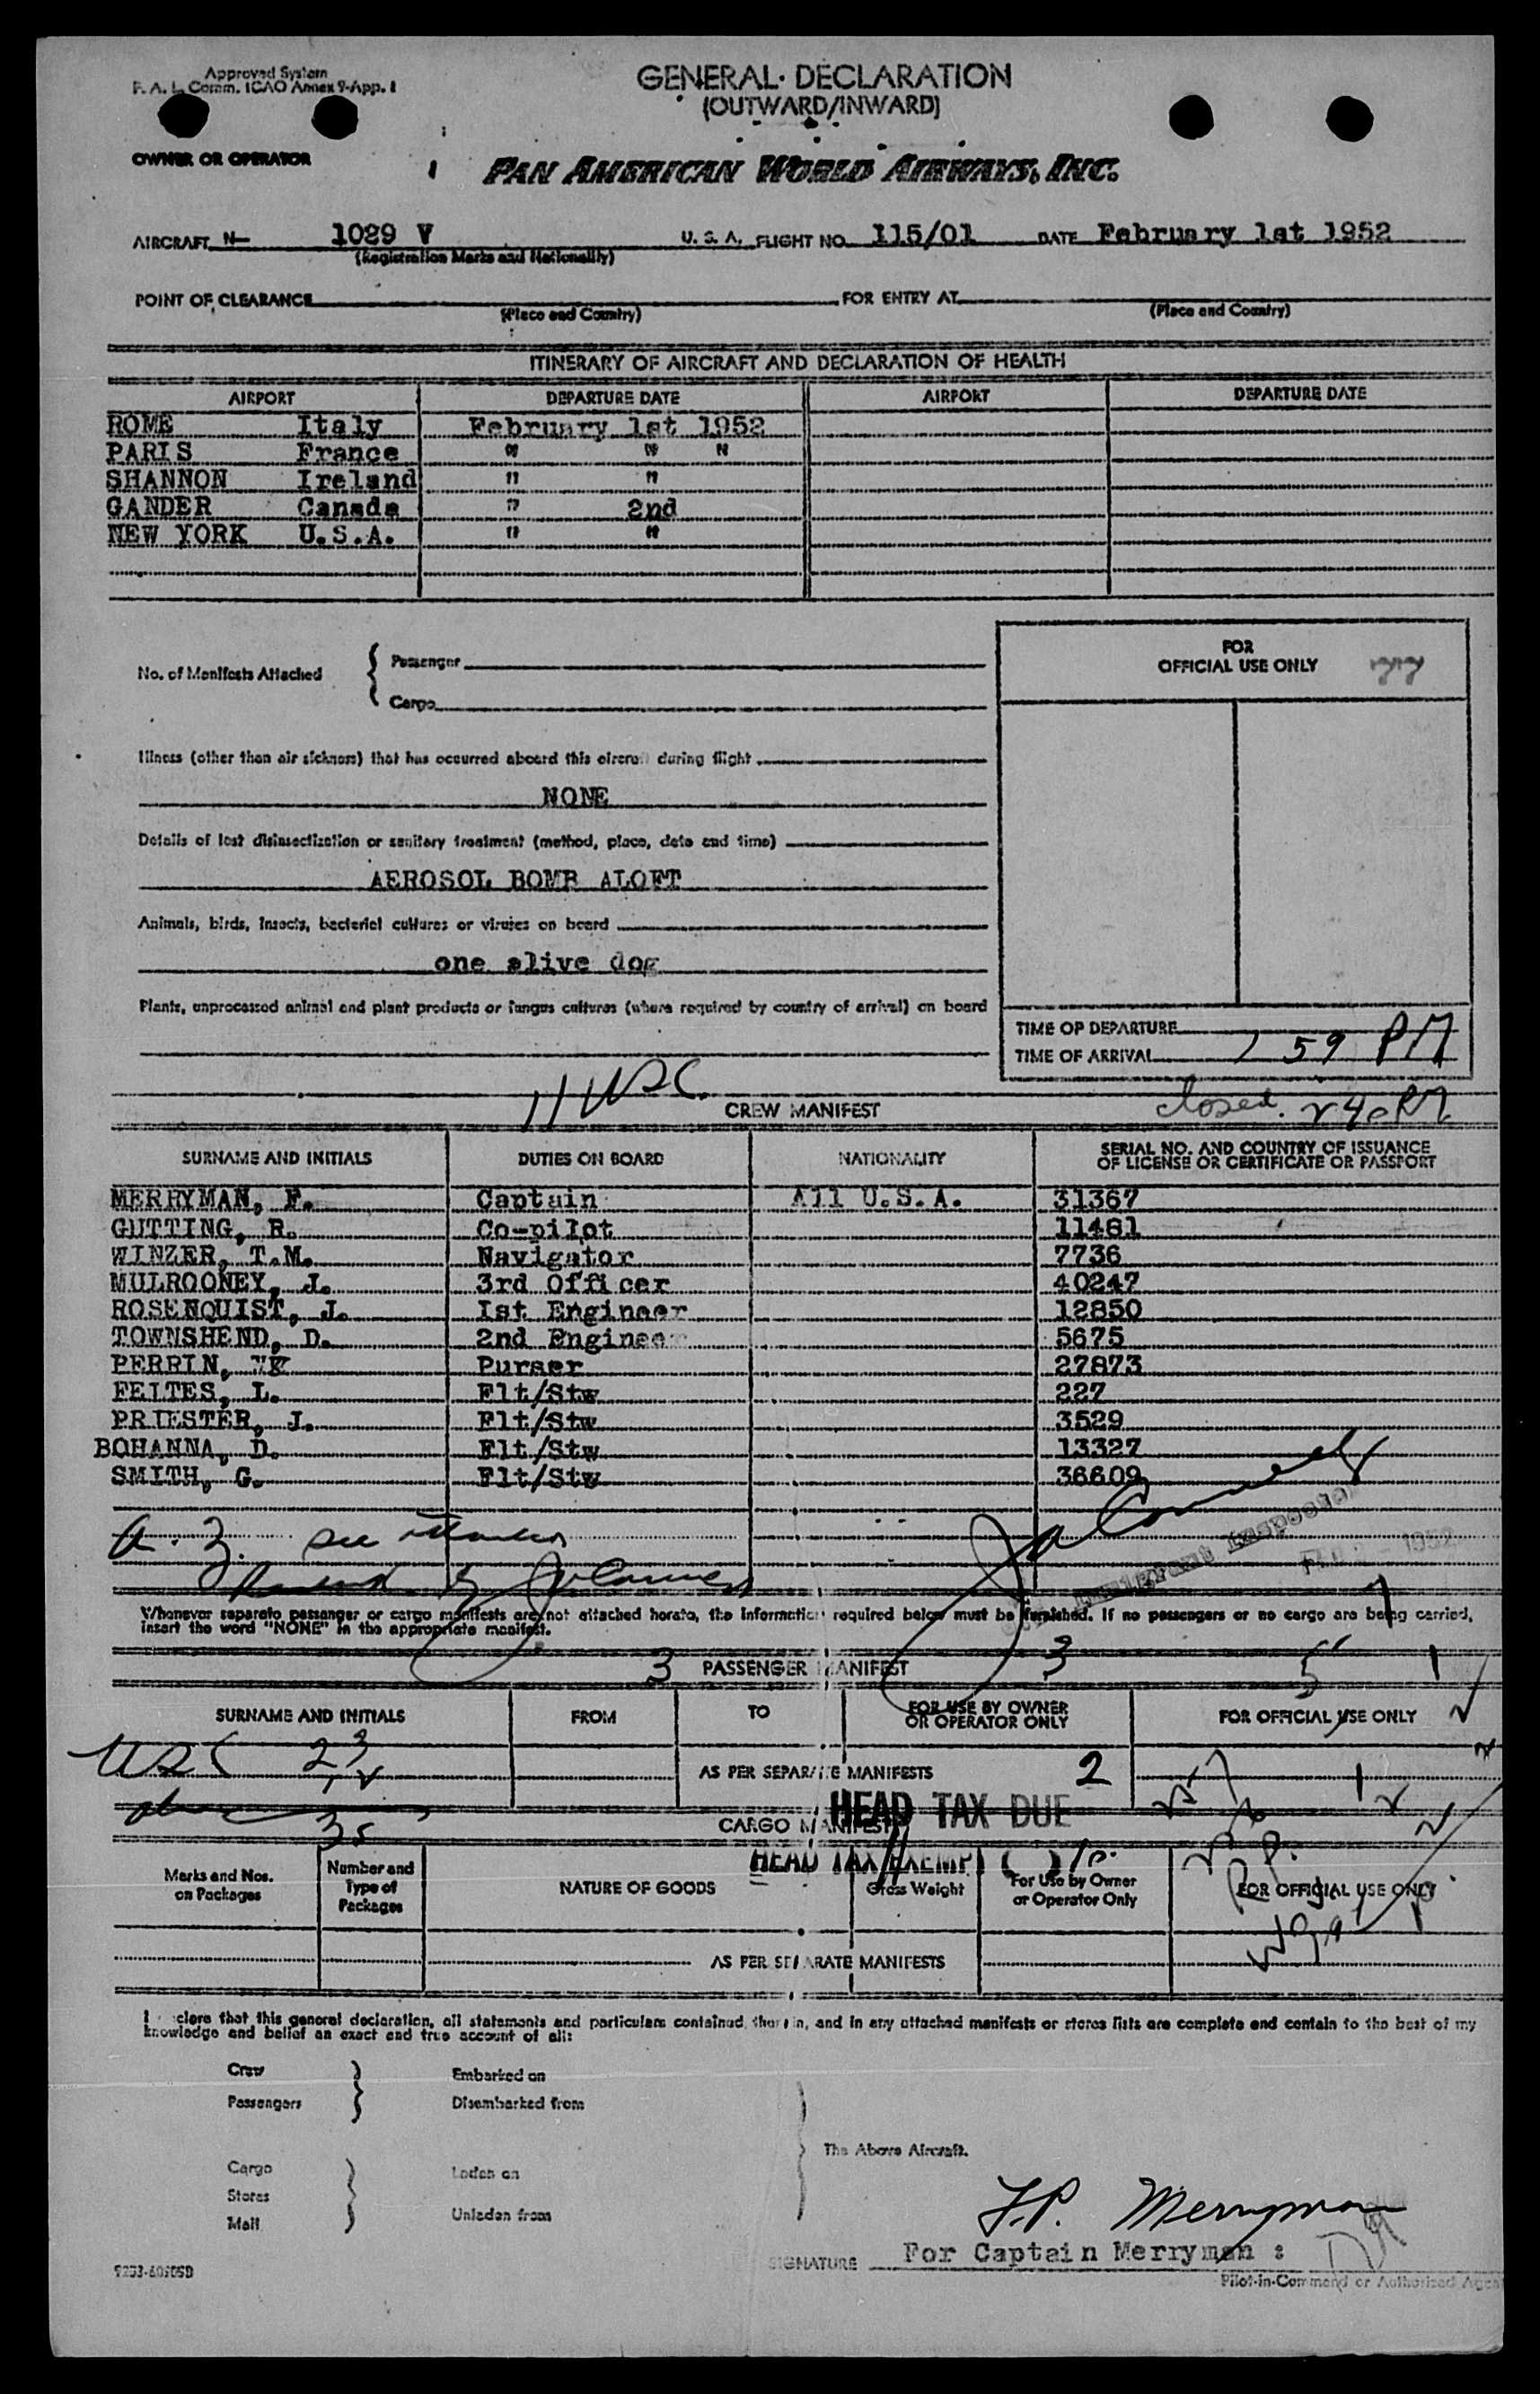 Approved System
F. A. L. Comm. ICAO Annex 9-App. 1
GENERAL DECLARATION
(OUTWARD/INWARD)
OWNER OR OPERATOR
PAN AMERICAN WORLD AIRWAYS, INC.
AIRCRAFT N- 1029 V U. S. A. FLIGHT NO. 115/01 DATE February 1st 1952
(Registration Marks and Nationality)
POINT OF CLEARANCE FOR ENTRY AT
(Place and Country) (Place and Country)
ITINERARY OF AIRCRAFT AND DECLARATION OF HEALTH
AIRPORT DEPARTURE DATE AIRPORT DEPARTURE DATE
ROME Italy February 1st 1952
PARIS France " " "
SHANNON Ireland " "
GANDER Canada " 2nd
NEW YORK U.S.A. " "
No. of Manifests Attached { Passenger
Cargo
FOR
OFFICIAL USE ONLY 77
Illness (other than air sickness) that has occurred aboard this aircraft during flight
NONE
Details of last disinsectization or sanitary treatment (method, place, date and time)
AEROSOL BOMB ALOFT
Animals, birds, insects, bacterial cultures or viruses on board
one alive dog
Plants, unprocessed animal and plant products or fungus cultures (where required by country of arrival) on board
TIME OF DEPARTURE
TIME OF ARRIVAL 1 59 PM
11 USC
CREW MANIFEST
closed 240 PM
SURNAME AND INITIALS DUTIES ON BOARD NATIONALITY SERIAL NO. AND COUNTRY OF ISSUANCE
OF LICENSE OR CERTIFICATE OR PASSPORT
MERRYMAN, F. Captain All U.S.A. 31367
GUTTING, R. Co-pilot 11481
WINZER, T.M. Navigator 7736
MULROONEY, J. 3rd Officer 40247
ROSENQUIST, J. 1st Engineer 12850
TOWNSHEND, D. 2nd Engineer 5675
PERRIN, Purser 27873
FEITES, L. Flt/Stw 227
PRIESTER, J. Flt/Stw 3529
BOHANNA, D. Flt/Stw 13327
SMITH, G. Flt/Stw 36609
Immigrant Inspector
1952
Whenever separate passenger or cargo manifests are not attached hereto, the information required below must be furnished. If no passengers or no cargo are being carried,
insert the word "NONE" in the appropriate manifest.
3 PASSENGER MANIFEST 3 5 1
SURNAME AND INITIALS FROM TO FOR USE BY OWNER
OR OPERATOR ONLY FOR OFFICIAL USE ONLY
USC 23
AS PER SEPARATE MANIFESTS 2
HEAD TAX DUE
35
CARGO MANIFEST
HEAD TAX EXEMPT
Marks and Nos.
on Packages Number and
Type of
Packages NATURE OF GOODS Gross Weight For Use by Owner
or Operator Only FOR OFFICIAL USE ONLY
AS PER SEPARATE MANIFESTS
I declare that this general declaration, all statements and particulars contained therein, and in any attached manifests or stores lists are complete and contain to the best of my
knowledge and belief an exact and true account of all:
Crew
Passengers
Embarked on
Disembarked from
The Above Aircraft.
Cargo
Stores
Mail
Laden on
Unladen from
F.P. Merryman
SIGNATURE For Captain Merryman :
Pilot-in-Command or Authorized Agent